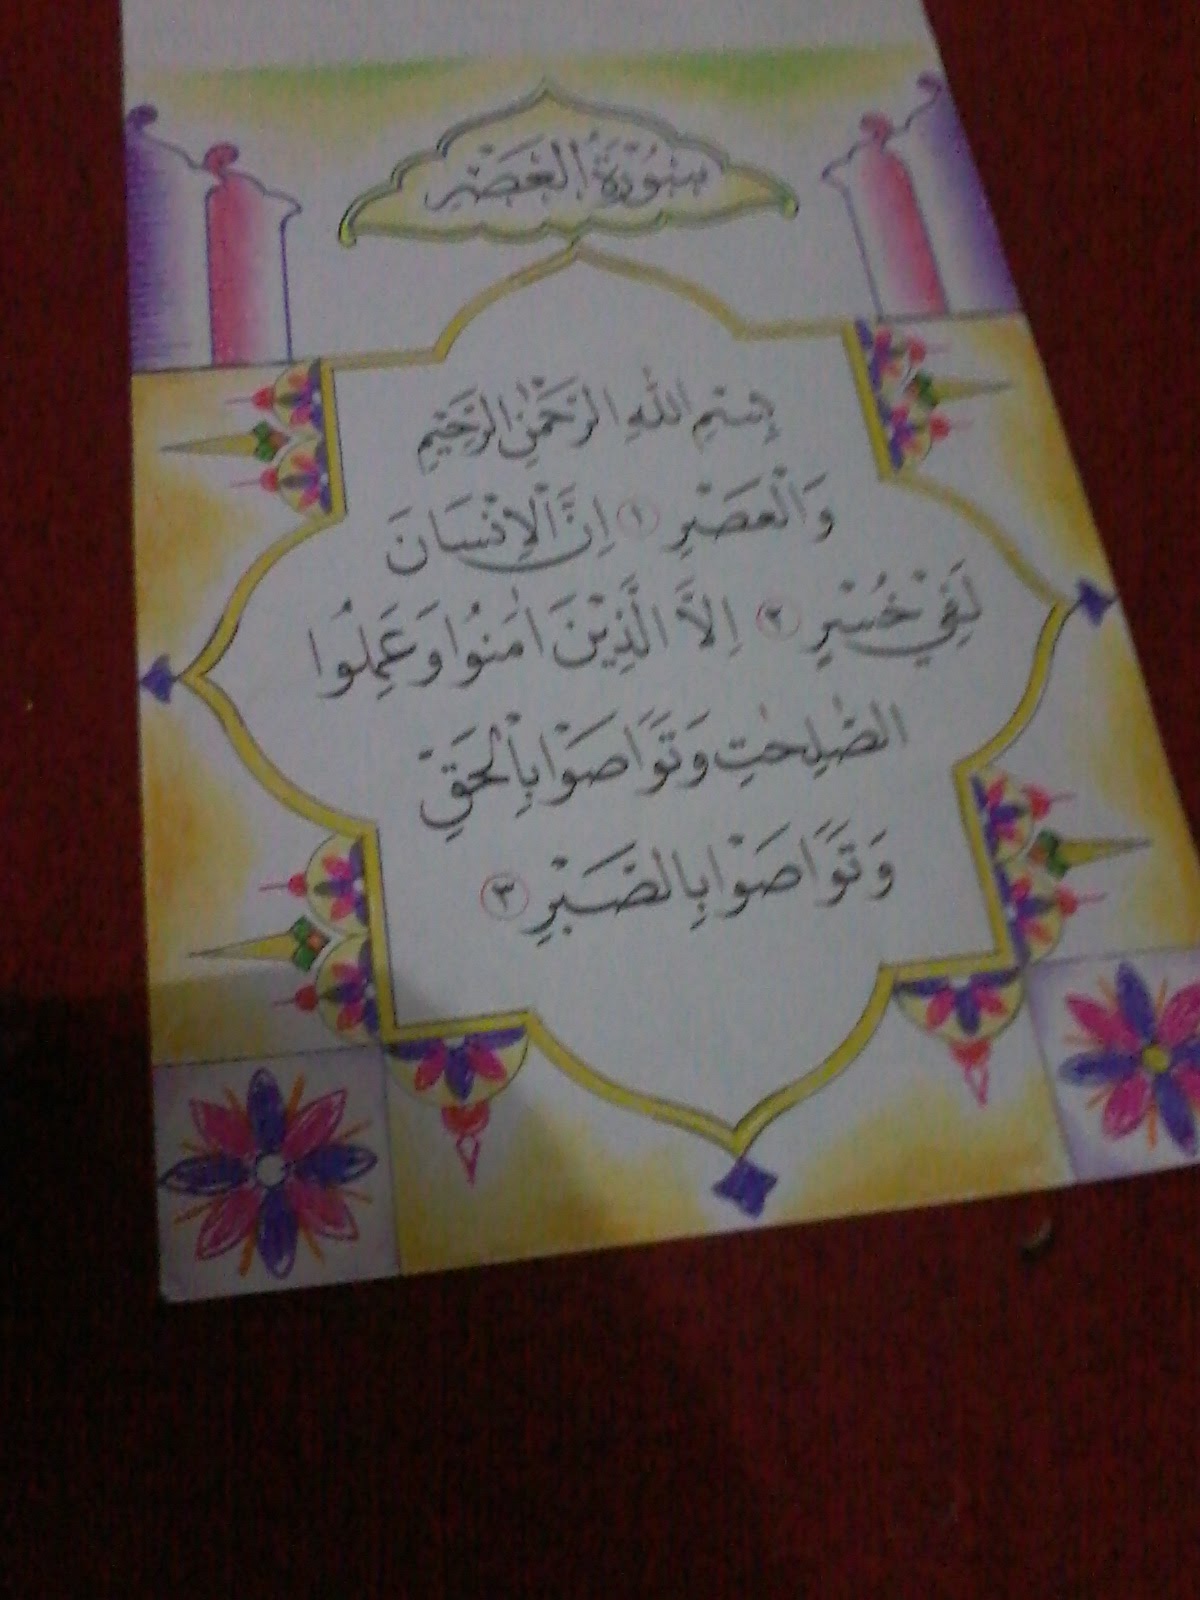 سُوْرَةُ الْعَصْرِ
بِسْمِ اللهِ الرَّحْمٰنِ الرَّحِيْمِ
وَالْعَصْرِ ١ اِنَّ الْاِنْسَانَ
لَفِيْ خُسْرٍ ٢ اِلاَّ الَّذِيْنَ اٰمَنُوْا وَعَمِلُوا
الصّٰلِحٰتِ وَتَوَاصَوْا بِالْحَقِّ
وَتَوَاصَوْا بِالصَّبْرِ ٣